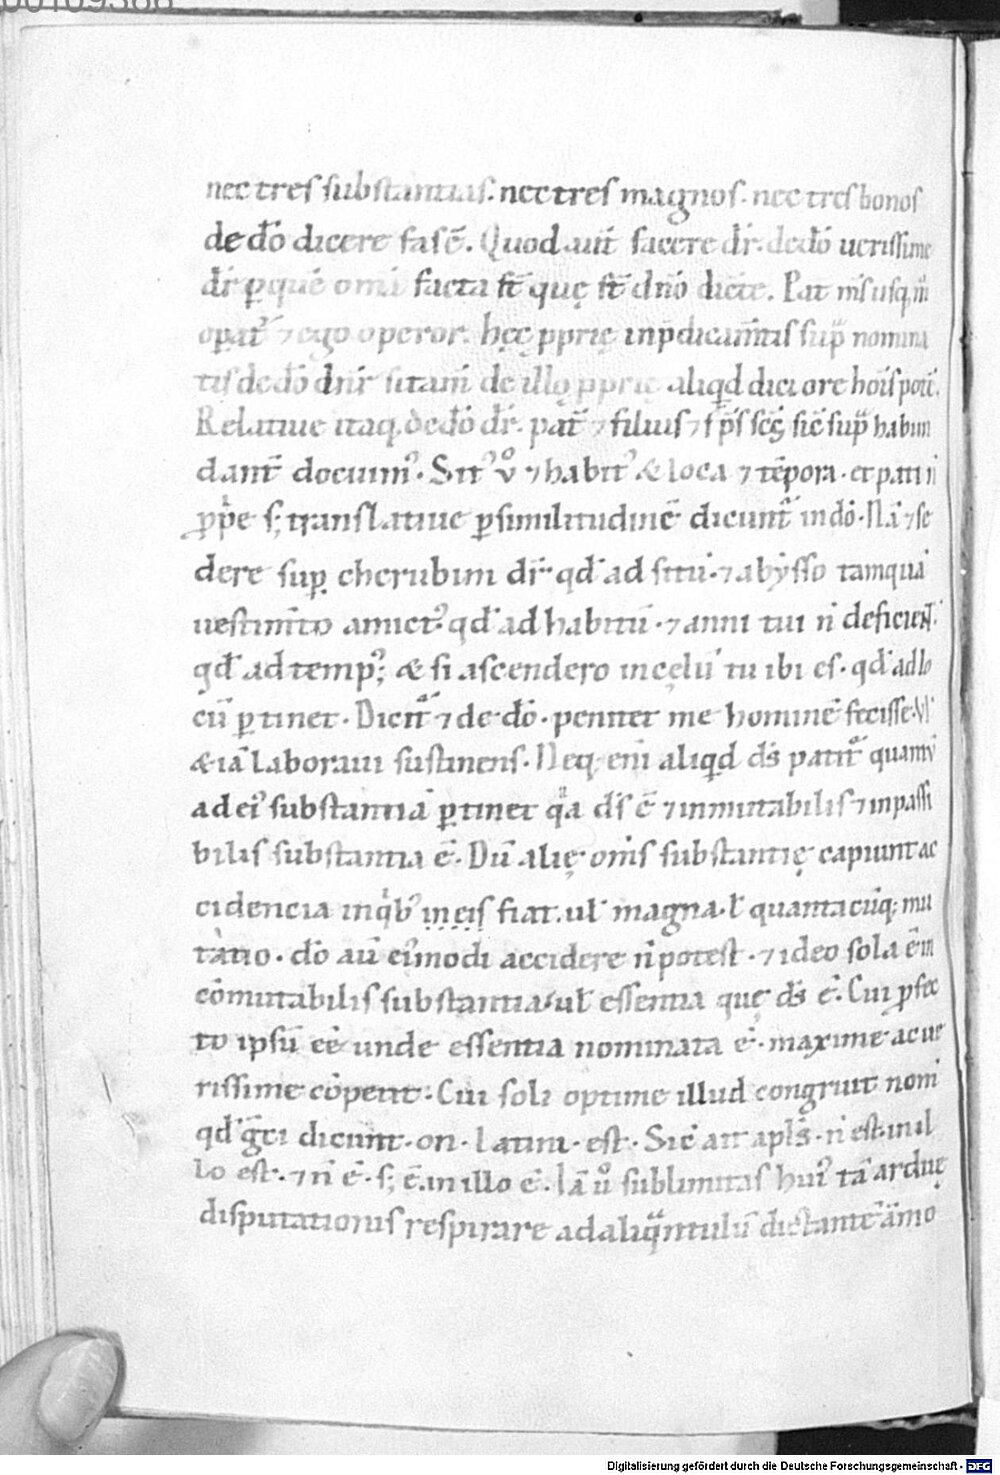 00109388
nec tres substantias. nec tres magnos. nec tres bonos
de dō dicere fas ē. Quod aut̄ facere dr̄. de dō uerissime
dr̄ ꝑ quē omīa facta st̄ quę st̄ dn̄o dic̄te. Pat̄ m̄s usq; m̄
opat᷑ ⁊ ego operor. hęc ꝓprię in p̄dicam̄tis sup̄ nomina
tis de dō dn̄r sitam̄ de illo ꝓprię aliqd̄ dici ore hōis pot̄.
Relatiue itaq; de dō dr̄. pat̄ ⁊ filius ⁊ sp̄s sc̄s sic̄ sup̄ habun
dant̄ docuim᷒. Sit᷒ v̊ ⁊ habit᷒ & loca ⁊ tēpora. et pati n̄
ꝓp̄e s; translatiue ꝑ similitudinē dicunt᷑ in dō. Nā ⁊ se
dere sup̄ cherubim dr̄. qd̄ ad sitū. ⁊ abysso tamquā
uestim̄to amict᷒. qd̄ ad habitū. ⁊ anni tui n̄ deficient.
qd̄ ad temp᷒; & si ascendero in cęlū tu ibi es. qd̄ ad lo
cū ꝑtinet. Dicit᷑ ⁊ de dō. penitet me hominē fecisse. Vl̄
& iā laboraui sustinens. Neq; enī aliqd̄ ds̄ patit᷑ quantū
ad ei᷒ substantiā ꝑtinet q̄a ds̄ ē ⁊ inmutabilis ⁊ inpassi
bilis substantia ē. Dū alię om̄s substantię capiunt ac
cidencia in qb᷒ in eis fiat. ul̄ magna. l̄ quantacūq; mu
tatio. dō aū ei᷒modi accidere n̄ potest. ⁊ ideo sola ē in
cōmutabilis substantia ul̄ essentia quę ds̄ ē. Cui ꝓfec
to ipsū ēē unde essentia nominata ē. maxime ac ue
rissime cōpetit. Cui soli optime illud congruit nom̄
qd̄ gr̄ci dicunt. on. latini. est. Sic̄ ait apl̄s. n̄ est. in il
lo est. ⁊ n̄ ē. s; ē. in illo ē. Iā ů sublimitas hui᷒ tā ardue
disputationis respirare ad aliq̄ntulū dictante ām̄o
Digitalisierung gefördert durch die Deutsche Forschungsgemeinschaft - DFG